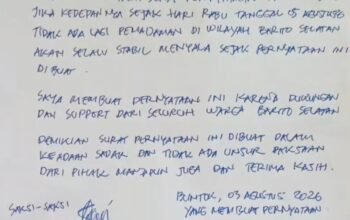 JIKA KEDEPANNYA SEJAK HARI RABU TANGGAL 05 AGUSTUS
TIDAK ADA LAGI PEMADAMAN DI WILAYAH BARITO SELATAN
AKAN SELALU STABIL MENYALA SEJAK PERNYATAAN INI
DI BUAT.
SAYA MEMBUAT PERNYATAAN INI KARENA DUKUNGAN
DAN SUPPORT DARI SELURUH WARGA BARITO SELATAN
DEMIKIAN SURAT PERNYATAAN INI DIBUAT DALAM
KEADAAN SADAR DAN TIDAK ADA UNSUR PAKSAAN
DARI PIHAK MANAPUN JUGA DAN TERIMA KASIH.
BUNTOK, 03 AGUSTUS 2026
SAKSI-SAKSI
YANG MEMBUAT PERNYATAAN